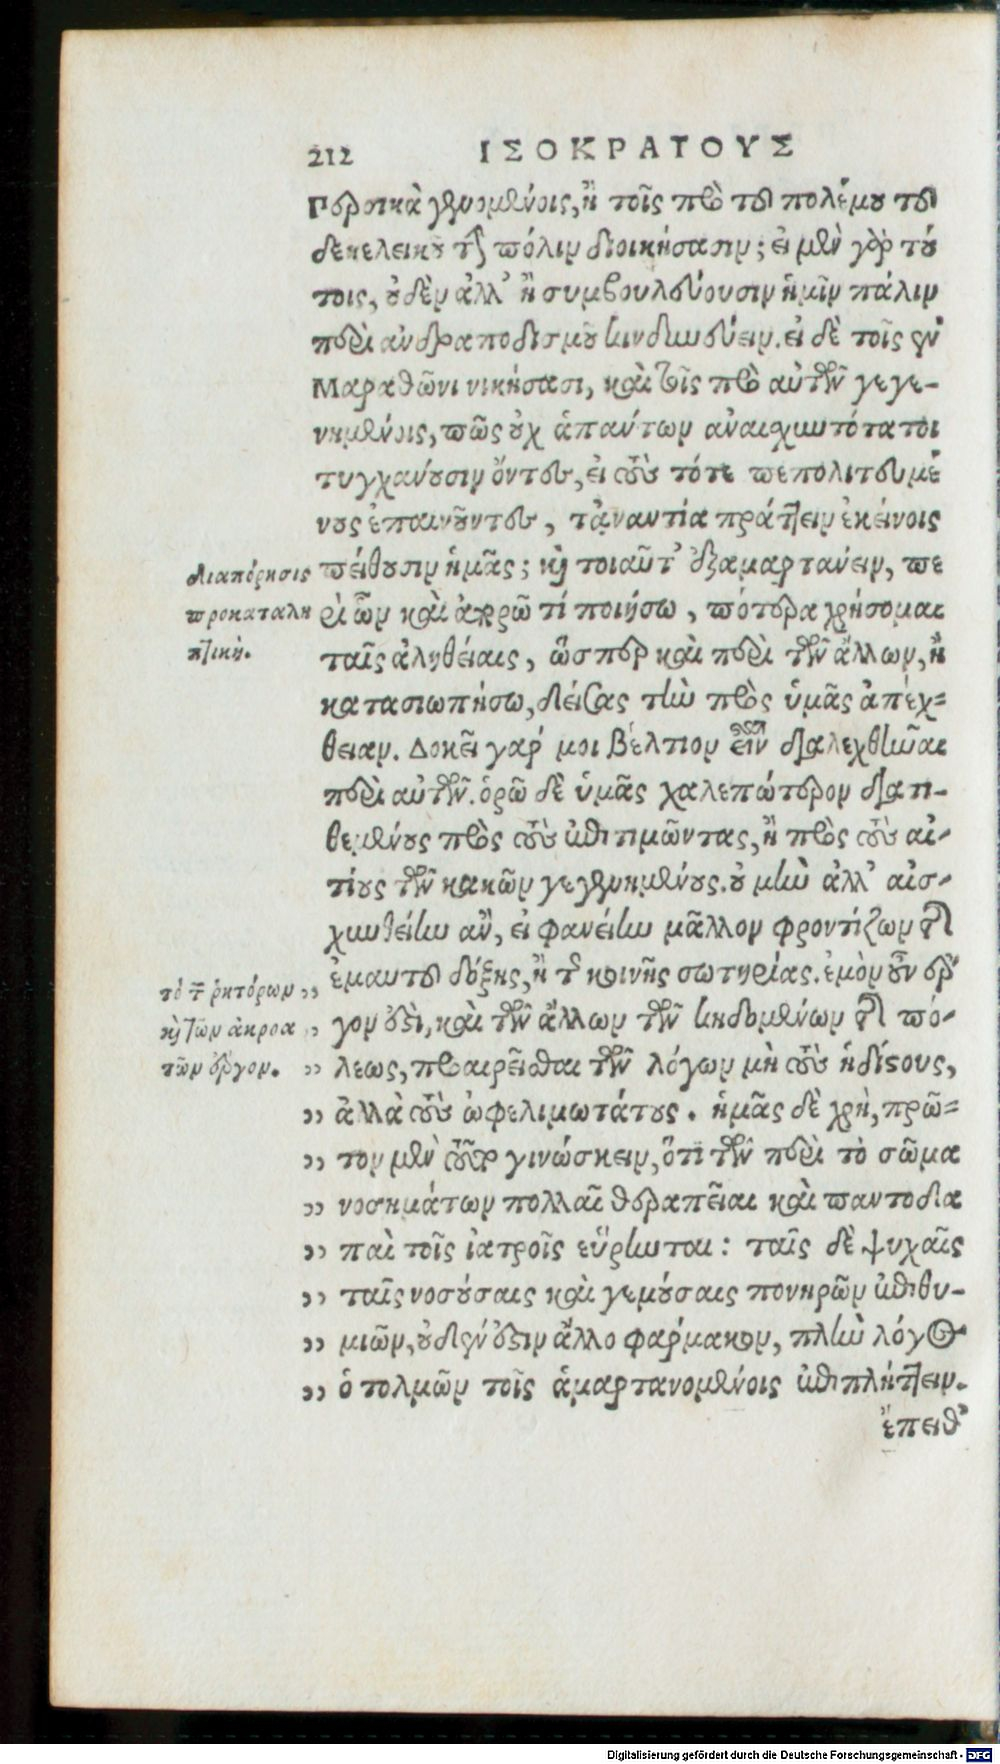 212 ΙΣΟΚΡΑΤΟΥΣ
Περσικὰ γενομένοις, ἢ τοῖς πρὸ τοῦ πολέμου τοῦ
δεκελεικοῦ τὴν πόλιν διοικήσασιν; εἰ μὲν γὰρ τού
τοις, οὐδὲν ἀλλ' ἢ συμβουλεύουσιν ἡμῖν πάλιν
περὶ ἀνδραποδισμοῦ κινδυνεύειν. εἰ δὲ τοῖς ἐν
Μαραθῶνι νικήσασι, καὶ τοῖς πρὸ αὐτῶν γεγε-
νημένοις, πῶς οὐχ ἁπάντων ἀναισχυντότατοι
τυγχάνουσιν ὄντες, εἰ τοὺς τότε πεπολιτευμέ
νους ἐπαινοῦντες, τἀναντία πράττειν ἐκείνοις
διαπόρησις
προκαταλη
πτική.
πείθουσιν ἡμᾶς; καὶ τοιαῦτ' ἐξαμαρτάνειν, πε
ρὶ ὧν καὶ ἀπορῶ τί ποιήσω, πότερα χρήσομαι
ταῖς ἀληθείαις, ὥσπερ καὶ περὶ τῶν ἄλλων, ἢ
κατασιωπήσω, δείσας τὴν πρὸς ὑμᾶς ἀπέχ-
θειαν. Δοκεῖ γάρ μοι βέλτιον εἶναι διαλεχθῆναι
περὶ αὐτῶν. ὁρῶ δὲ ὑμᾶς χαλεπώτερον διατι-
θεμένους πρὸς τοὺς ἐπιτιμῶντας, ἢ πρὸς τοὺς αἰ-
τίους τῶν κακῶν γεγενημένους. οὐ μὴν ἀλλ' αἰσ-
χυνθείην ἂν, εἰ φανείην μᾶλλον φροντίζων τῆς
ἐμαυτοῦ δόξης, ἢ τῆς κοινῆς σωτηρίας. ἐμὸν οὖν ἔρ
τὸ τῶν ῥητόρων
καὶ τῶν ἀκροα
τῶν ἔργον.
γον ἐστὶ, καὶ τῶν ἄλλων τῶν κηδομένων τῆς πό-
λεως, προαιρεῖσθαι τῶν λόγων μὴ τοὺς ἡδίστους,
ἀλλὰ τοὺς ὠφελιμωτάτους. ἡμᾶς δὲ χρὴ, πρῶ-
τον μὲν τοῦτο γινώσκειν, ὅτι τῶν περὶ τὸ σῶμα
νοσημάτων πολλαὶ θεραπεῖαι καὶ παντοδα
παὶ τοῖς ἰατροῖς εὕρηνται: ταῖς δὲ ψυχαῖς
ταῖς νοσούσαις καὶ γεμούσαις πονηρῶν ἐπιθυ-
μιῶν, οὐδέν ἐστιν ἄλλο φάρμακον, πλὴν λόγος
ὁ τολμῶν τοῖς ἁμαρτανομένοις ἐπιπλήττειν.
ἔπειθ'
Digitalisierung gefördert durch die Deutsche Forschungsgemeinschaft - DFG